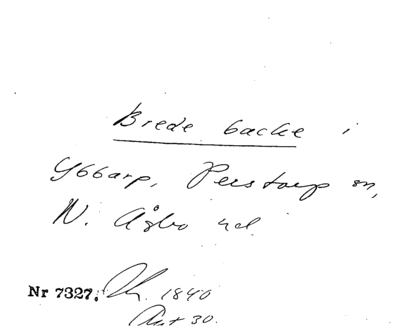 Brede backe i
Ybbarp, Perstorp sn,
N. Åsbo hd.
Nr 7327. 1840
Akt 30.